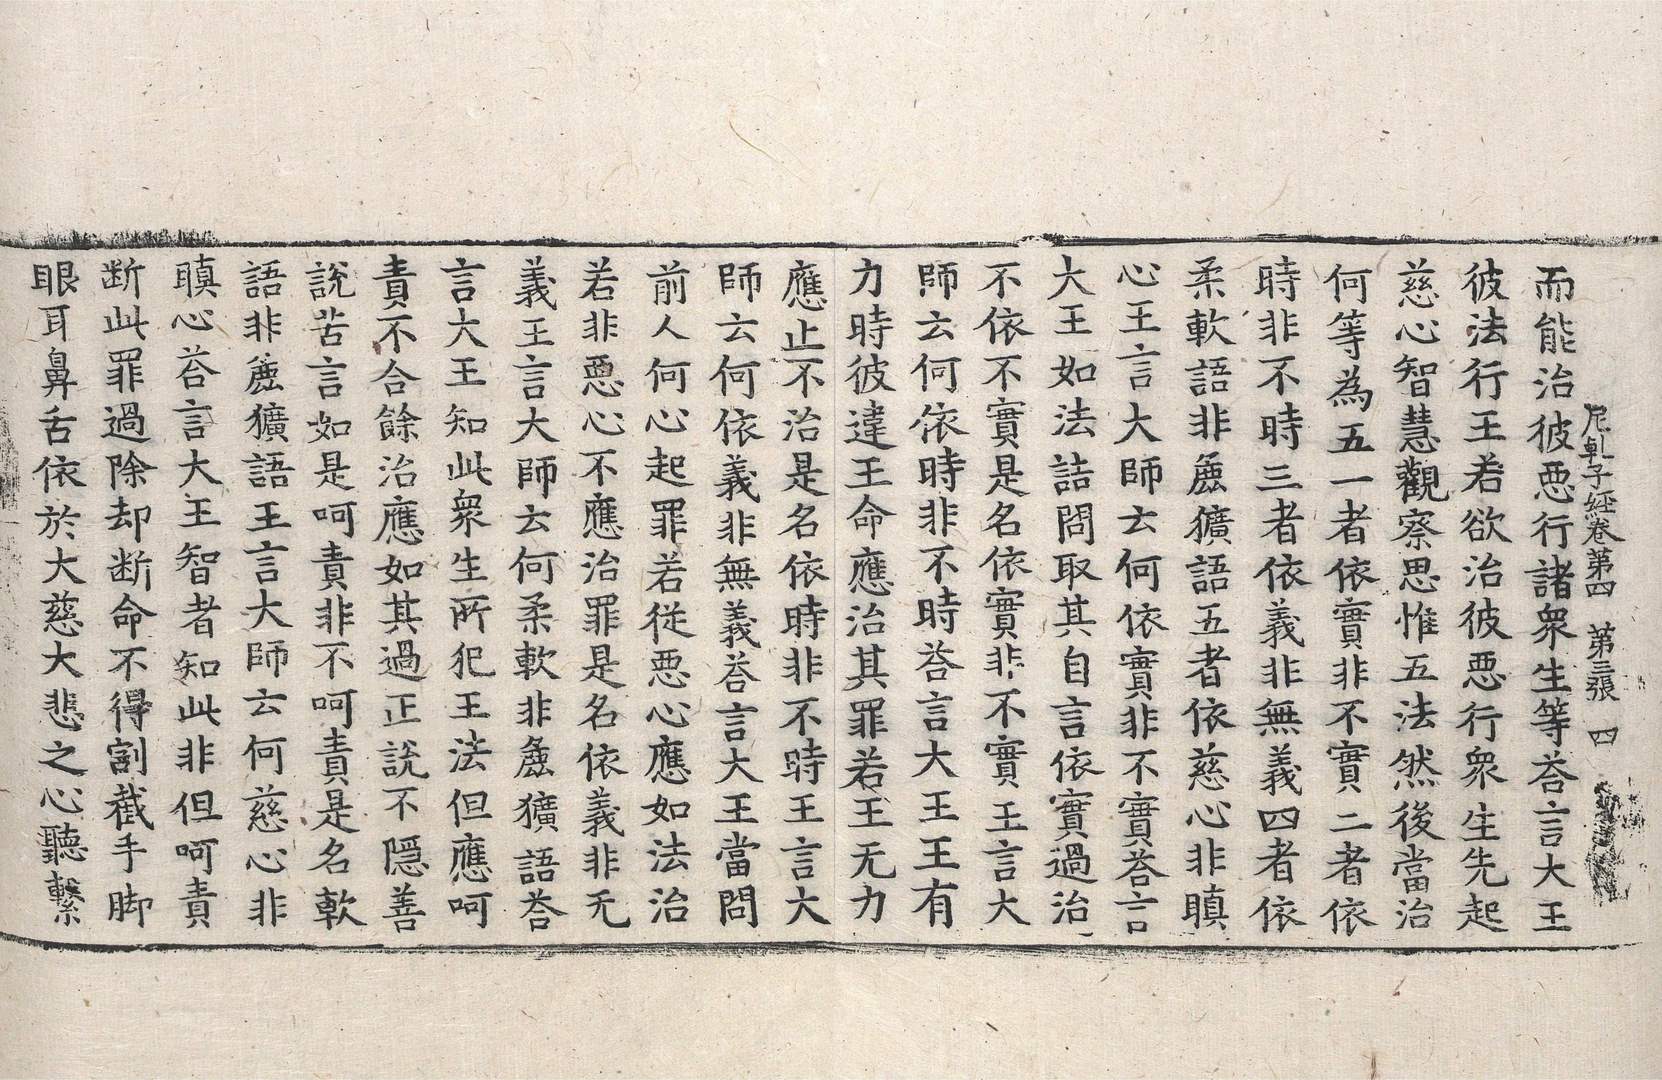 尼軋子經卷第四　第三張　四
而能治彼惡行諸衆生等荅言大王
彼法行王若欲治彼惡行衆生先起
慈心智慧觀察思惟五法然後當治
何等為五一者依實非不實二者依
時非不時三者依義非無義四者依
柔軟語非麁獷語五者依慈心非瞋
心王言大師云何依實非不實荅言
大王如法詰問取其自言依實過治
不依不實是名依實非不實王言大
師云何依時非不時荅言大王王有
力時彼違王命應治其罪若王无力
應止不治是名依時非不時王言大
師云何依義非無義荅言大王當問
前人何心起罪若從惡心應如法治
若非惡心不應治罪是名依義非无
義王言大師云何柔軟非麁獷語荅
言大王知此衆生所犯王法但應呵
責不合餘治應如其過正說不隱善
說苦言如是呵責非不呵責是名軟
語非麁獷語王言大師云何慈心非
瞋心荅言大王智者知此非但呵責
断此罪過除却断命不得割截手脚
眼耳鼻舌依於大慈大悲之心聽繫